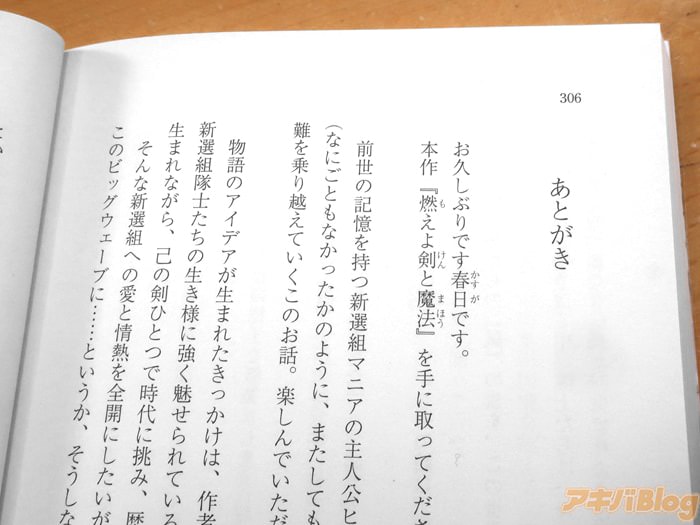 306
あとがき
お久しぶりです春日です。
本作『燃えよ剣と魔法』を手に取ってくださ
前世の記憶を持つ新選組マニアの主人公ヒ
（なにごともなかったかのように、またしても
難を乗り越えていくこのお話。楽しんでいただ
物語のアイデアが生まれたきっかけは、作者
新選組隊士たちの生き様に強く魅せられている
生まれながら、己の剣ひとつで時代に挑み、歴
そんな新選組への愛と情熱を全開にしたいが
このビッグウェーブに……というか、そうしな
アキバBlog